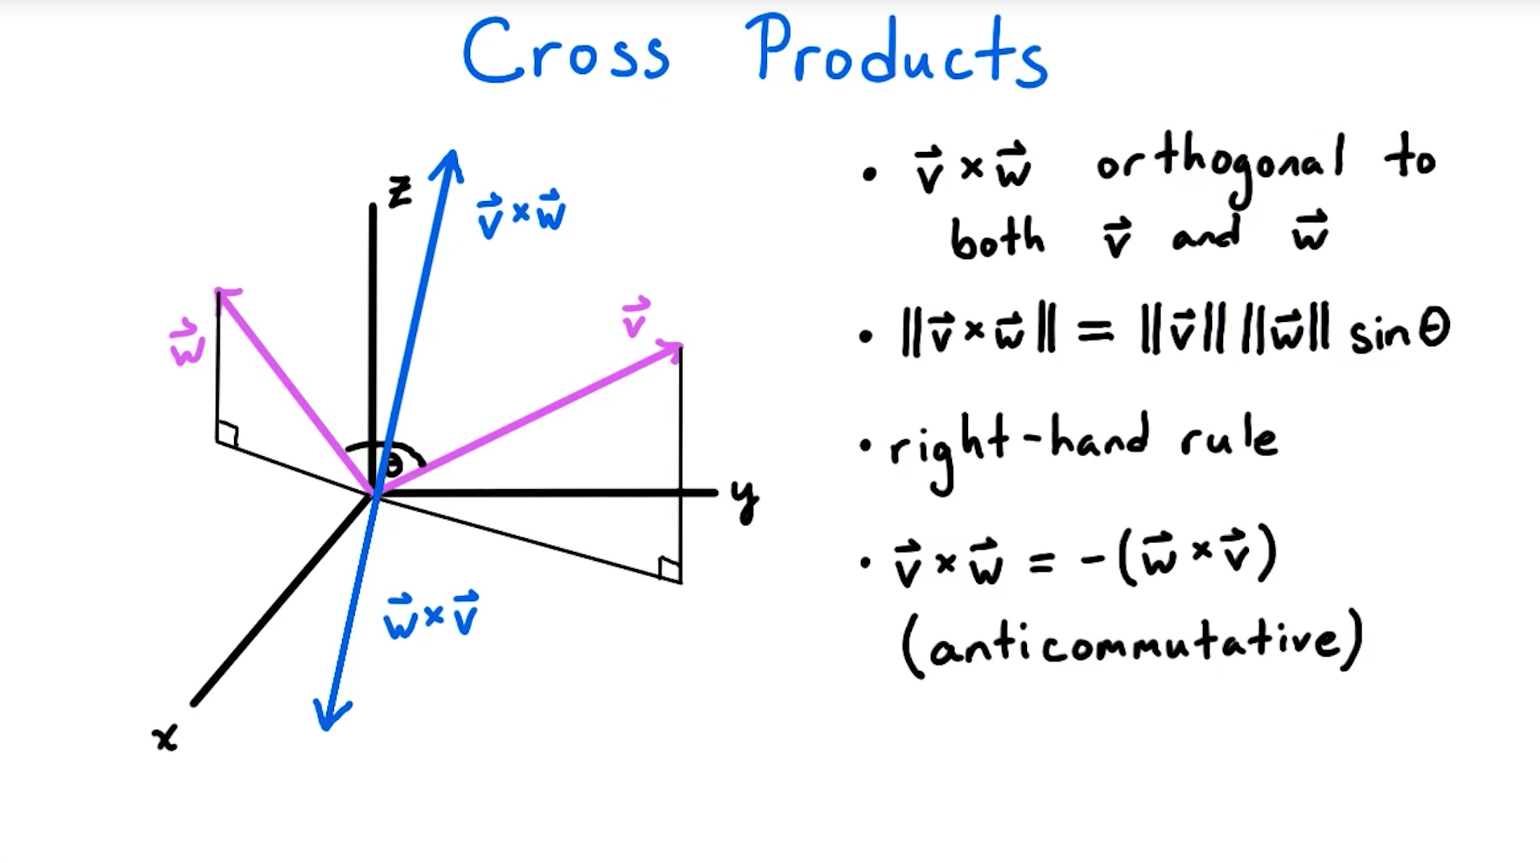 Cross Products
z
v⃗ × w⃗
w⃗
v⃗
θ
y
w⃗ × v⃗
x
• v⃗ × w⃗ orthogonal to
both v⃗ and w⃗
• ||v⃗ × w⃗|| = ||v⃗|| ||w⃗|| sin θ
• right-hand rule
• v⃗ × w⃗ = -(w⃗ × v⃗)
(anticommutative)